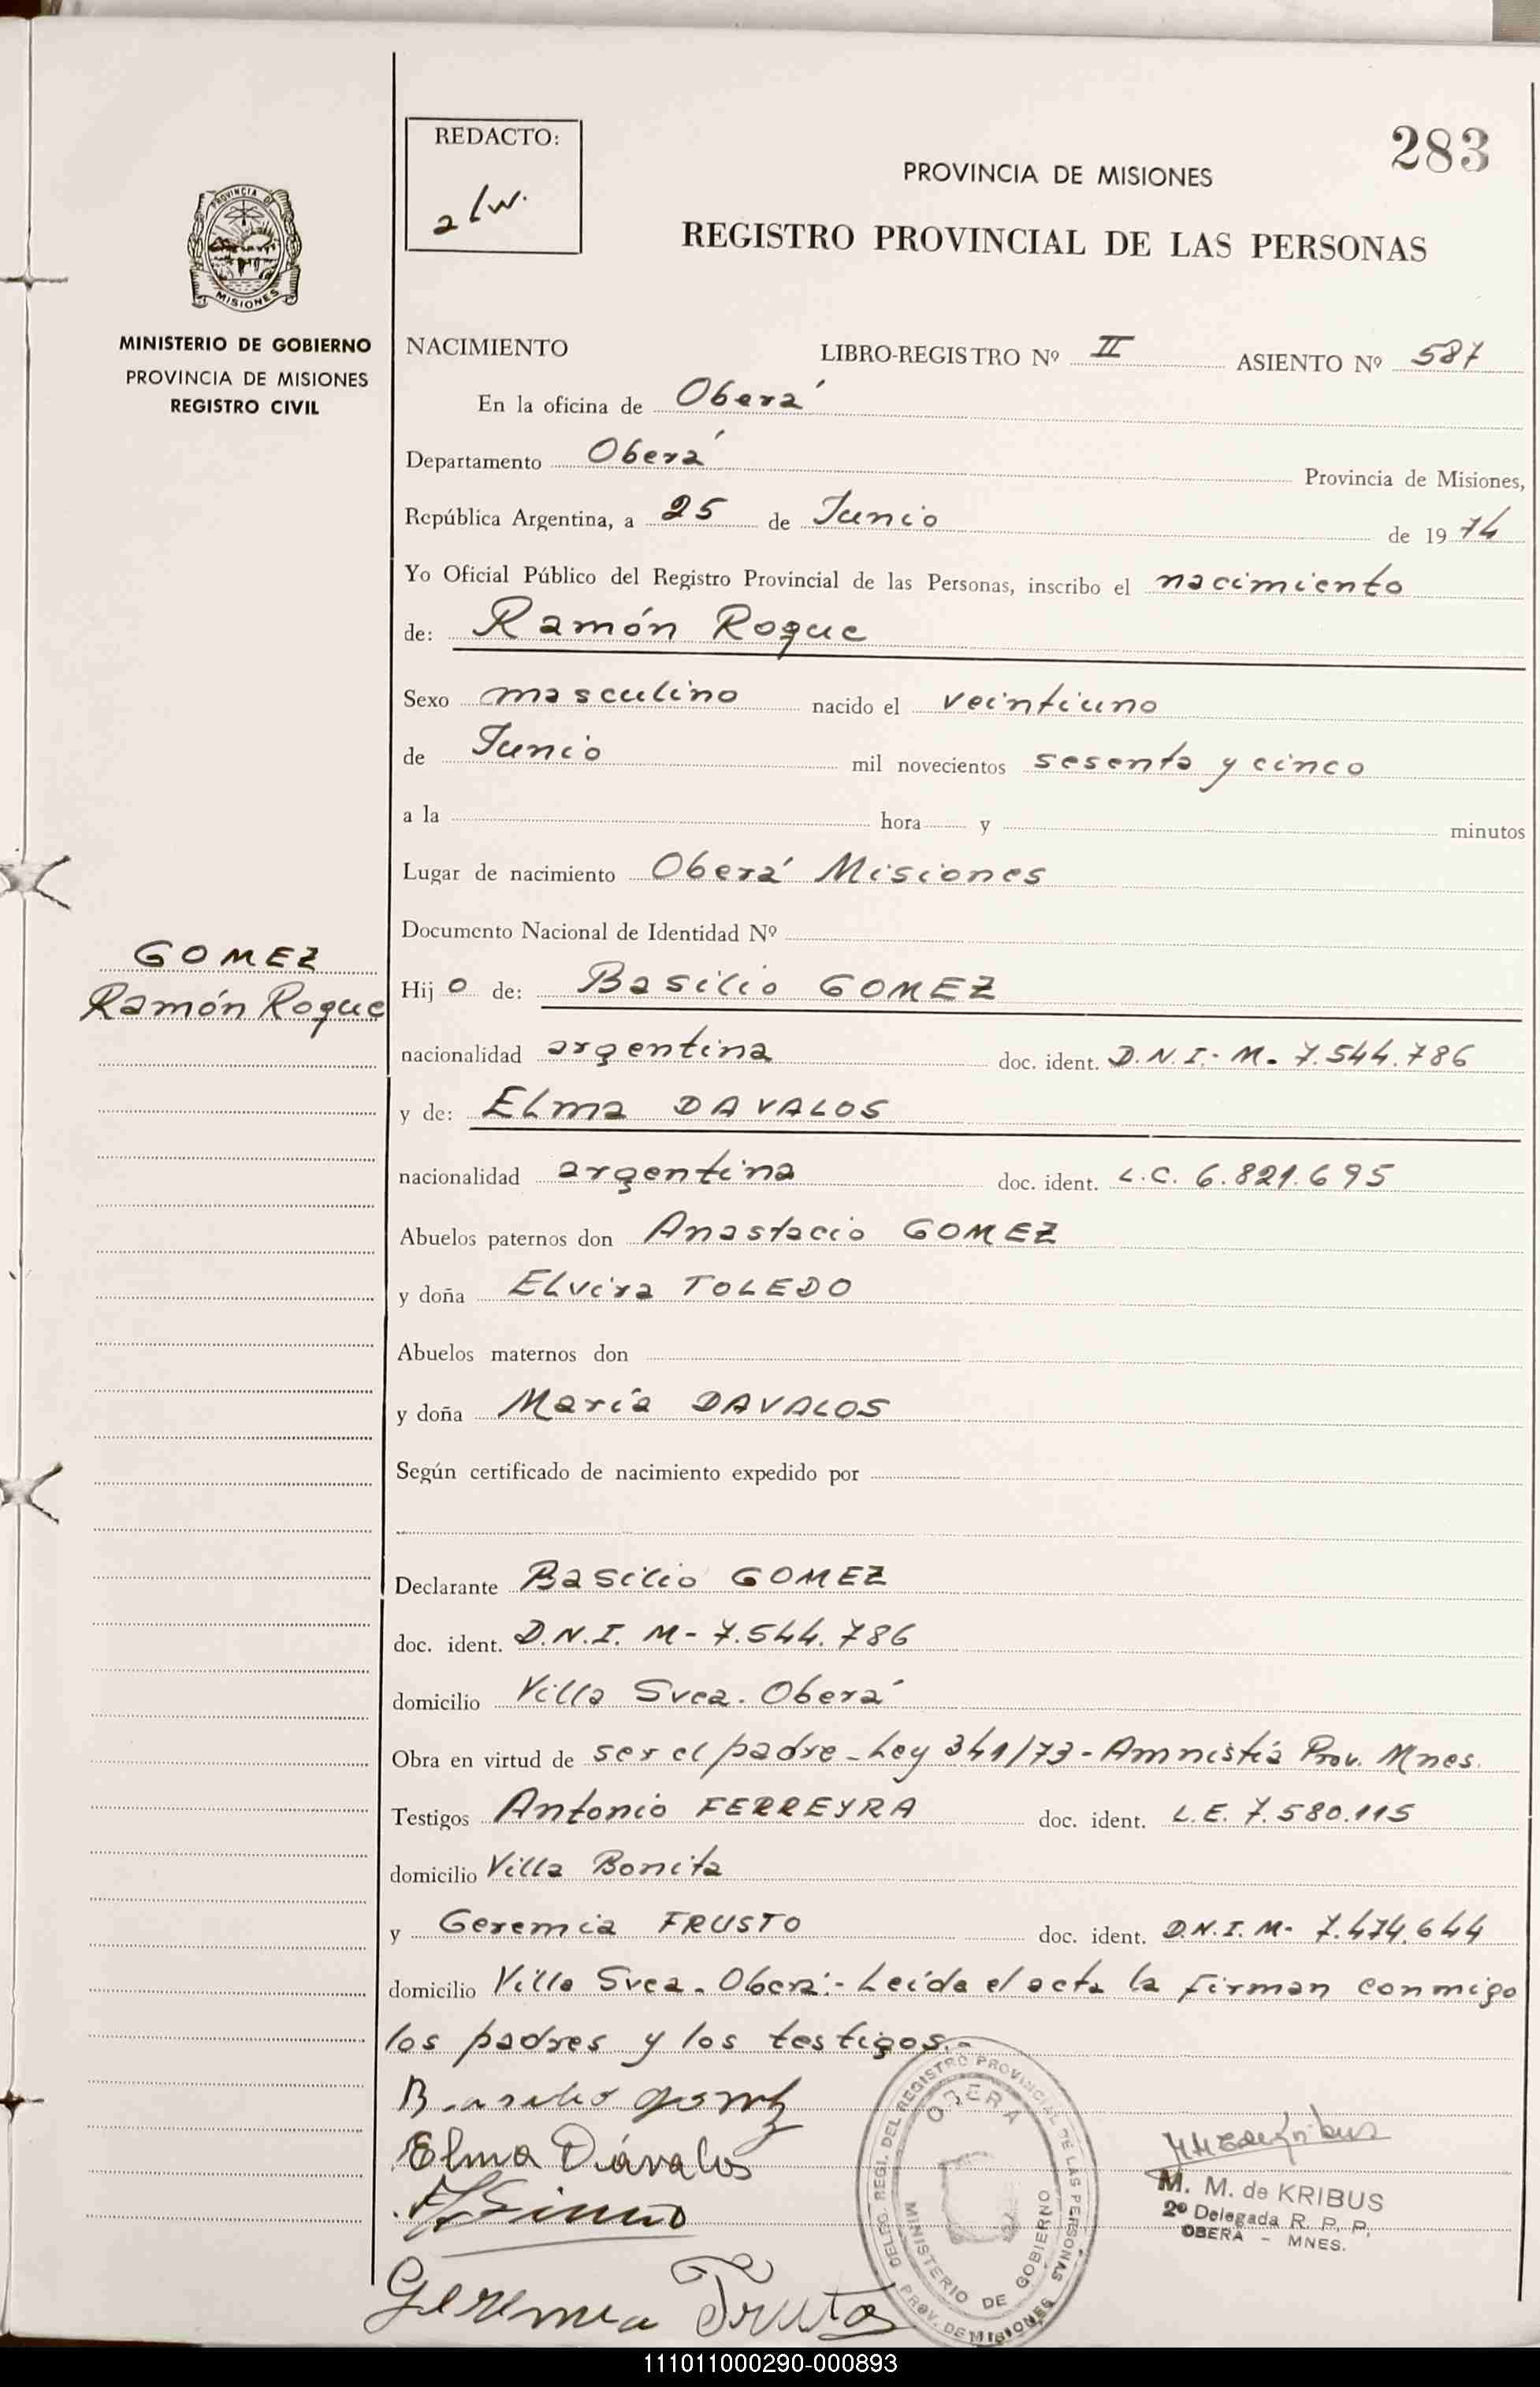 283
REDACTO:
PROVINCIA DE MISIONES
REGISTRO PROVINCIAL DE LAS PERSONAS
PROVINCIA DE
MISIONES
MINISTERIO DE GOBIERNO
PROVINCIA DE MISIONES
REGISTRO CIVIL
NACIMIENTO LIBRO-REGISTRO Nº II ASIENTO Nº 587
En la oficina de Oberá
Departamento Oberá Provincia de Misiones,
República Argentina, a 25 de Junio de 1974
Yo Oficial Público del Registro Provincial de las Personas, inscribo el nacimiento
de: Ramón Roque
Sexo masculino nacido el veintiuno
de Junio mil novecientos sesenta y cinco
a la hora y minutos
Lugar de nacimiento Oberá Misiones
Documento Nacional de Identidad Nº
GOMEZ
Ramón Roque
Hijo de: Basilio GOMEZ
nacionalidad argentina doc. ident. D.N.I.- M- 7.544.786
y de: Elma DAVALOS
nacionalidad argentina doc. ident. L.C. 6.821.695
Abuelos paternos don Anastacio GOMEZ
y doña Elvira TOLEDO
Abuelos maternos don
y doña María DAVALOS
Según certificado de nacimiento expedido por
Declarante Basilio GOMEZ
doc. ident. D.N.I. M- 7.544.786
domicilio Villa Svea. Oberá
Obra en virtud de ser el padre - Ley 341/73 - Amnistía Prov. Mnes.
Testigos Antonio FERREYRA doc. ident. L.E. 7.580.115
domicilio Villa Bonita
y Geremia FRUSTO doc. ident. D.N.I. M- 7.474.644
domicilio Villa Svea. Oberá.- Leída el acta la firman conmigo
los padres y los testigos.-
Elma Dávalos
Geremia Frutos
DELEG. REGI. DEL REGISTRO PROVINCIAL DE LAS PERSONAS
OBERA
MINISTERIO DE GOBIERNO
PROV. DE MISIONES
M. M. de KRIBUS
2º Delegada R. P. P.
OBERA - MNES.
111011000290-000893